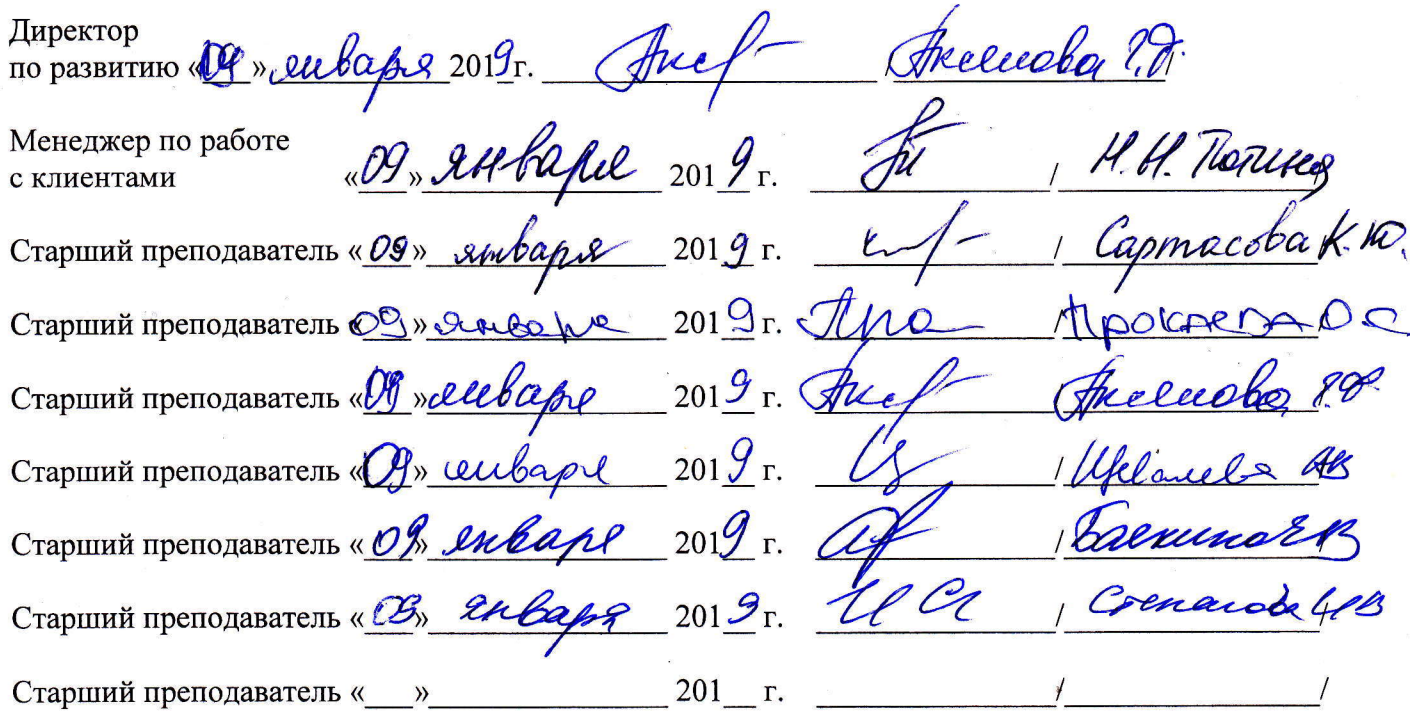 Директор
по развитию «09» января 2019г. Аксенова Г.Ф.
Менеджер по работе
с клиентами «09» января 2019 г. / Н.Н. Потина
Старший преподаватель «09» января 2019 г. / Сартасова К.Ю.
Старший преподаватель «09» января 2019 г. / О.С
Старший преподаватель «09» января 2019 г. Аксенова Г.Ф.
Старший преподаватель «09» января 2019 г. / АВ
Старший преподаватель «09» января 2019 г. /
Старший преподаватель «09» января 2019 г. / Степанова ИВ /
Старший преподаватель «___» 201__ г. / /